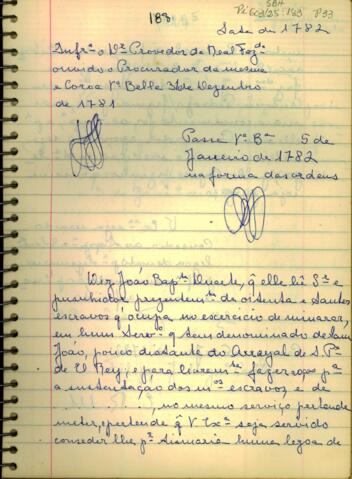 188
SBH
Pi 603/25:183 P33
Sala de 1782
Infr.ᵉ o D.ʳ Provedor da Real Faz.ᵈᵃ
ouvido o Procurador da mesma
e Coroa V.ᵃ Bella 3 de Dezembro
de 1781
Passe V.ᵃ B.ᵃ 5 de
Janeiro de 1782
na forma das ordens
Diz João Bap.ᵗᵃ Duarte, q̃ elle hé S.ʳ e
possuhidor prezentem.ᵗᵉ de oitenta e tantos
escravos q̃ ocupa no exercicio de minerar,
em hum q̃ tem denominado de Sam
João, pouco distante do Arrayal de S. P.º
de El Rey, e para fazer p.ᵃ
a sustentação dos m.ᵒˢ escravos, e de
. . . . . . . . . , no mesmo serviço pertende
meter, pertende q̃ V. Ex.ᵃ seja servido
conseder lhe p.ʳ Sismaria huma legoa de